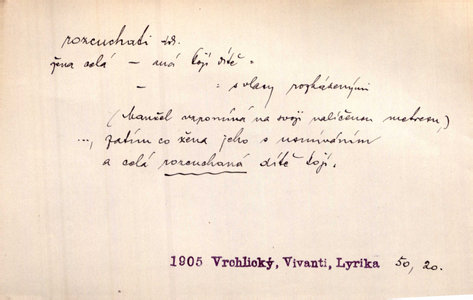 rozcuchati
žena celá – má kojí dítě =
– = s vlasy rozházenými
(Manžel vzpomíná na svoji nalíčenou metresu,)
..., zatím co žena jeho s usmíváním
a celá rozcuchaná dítě kojí.
1905 Vrchlický, Vivanti, Lyrika 50, 20.